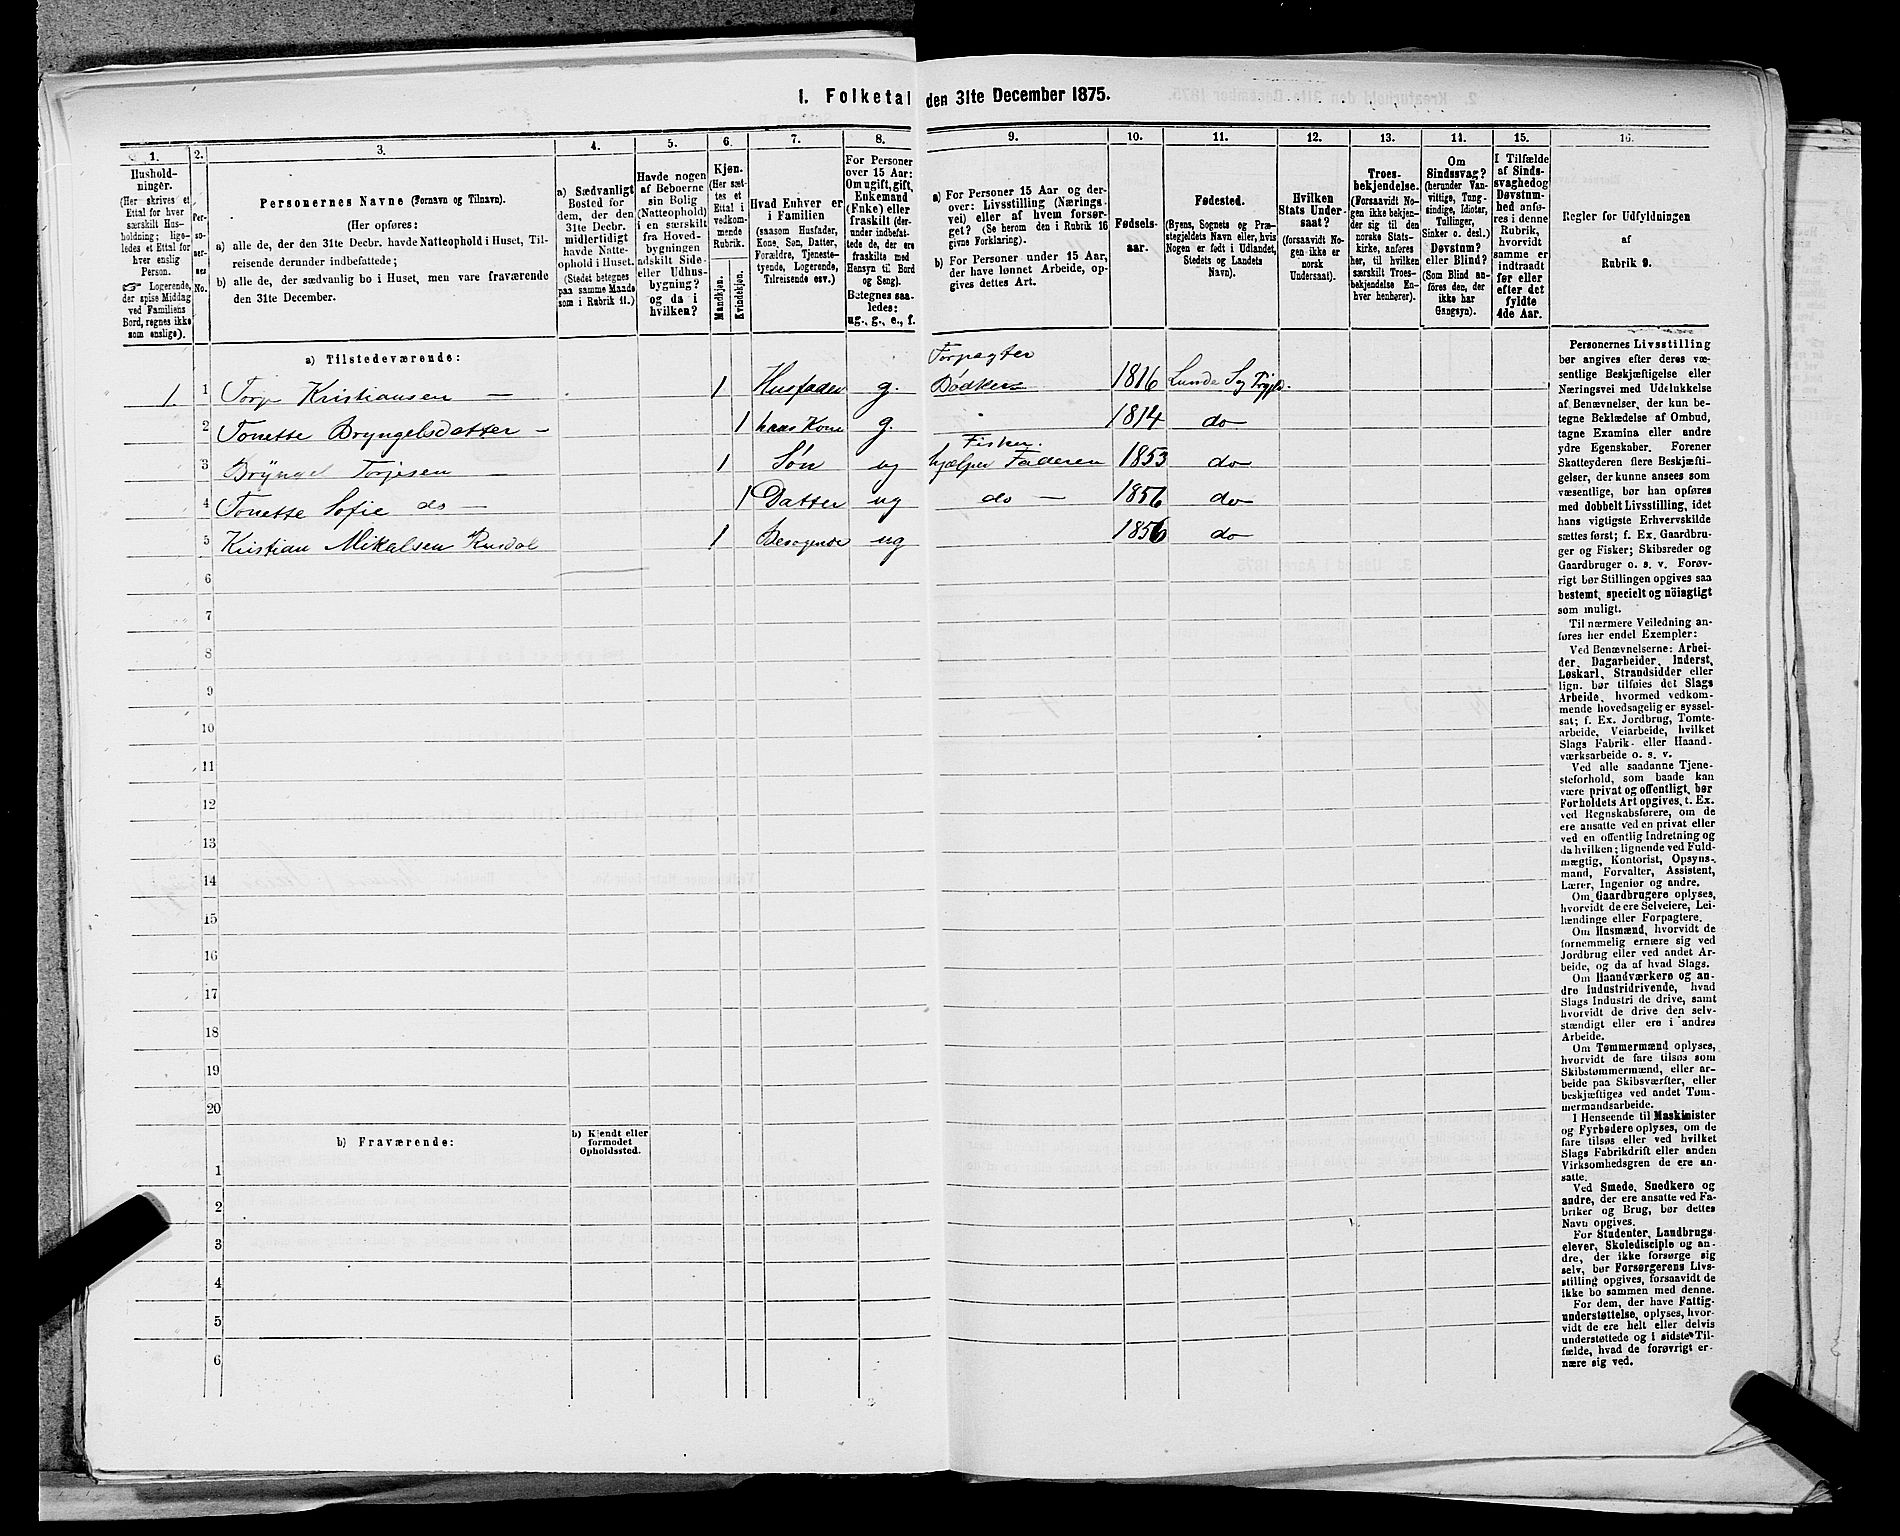 1. Folketal den 31te December 1875.
1.
Hushold-
ninger.
(Her skrives et
Ettal for hver
særskilt Hus-
holdning; lige-
ledes et Ettal for
hver enslig
Person.
Logerende,
der spise Middag
ved Familiens
Bord, regnes ikke
som enslige).
2.
Per-
so-
ner-
nes
No.
3.
Personernes Navne (Fornavn og Tilnavn).
(Her opføres:
a) alle de, der den 31te Decbr. havde Natteophold i Huset, Til-
reisende derunder indbefattede;
b) alle de, der sædvanlig bo i Huset, men vare fraværende
den 31te December.
4.
a) Sædvanligt
Bosted for
dem, der den
31te Decbr.
midlertidigt
havde Natte-
ophold i Huset.
(Stedet betegnes
paa samme Maade
som i Rubrik 11.)
5.
Havde nogen
af Beboerne
sin Bolig
(Natteophold)
i en særskilt
fra Hoved-
bygningen
adskilt Side-
eller Udhus-
bygning?
og da i
hvilken?
6.
Kjøn.
(Her sæt-
tes et
Ettal i
vedkom-
mende
Rubrik.
Mandkjøn.
Kvindekjøn.
7.
Hvad Enhver er
i Familien
(saasom Husfader,
Kone, Søn, Datter,
Forældre, Tjeneste-
tyende, Logerende,
Tilreisende osv.)
8.
For Personer
over 15 Aar:
Om ugift, gift,
Enkemand
(Enke) eller
fraskilt (der-
under indbefat-
tede de, der ere
fraskilte med
Hensyn til Bord
og Seng).
Betegnes saa-
ledes:
ug., g., e., f.
9.
a) For Personer 15 Aar og der-
over: Livsstilling (Nærings-
vei) eller af hvem forsør-
get? (Se herom den i Rubrik 16
givne Forklaring).
b) For Personer under 15 Aar,
der have lønnet Arbeide, op-
gives dettes Art.
10.
Fødsels-
aar.
11.
Fødested.
(Byens, Sognets og Præ-
stegjeldets Navn eller, hvis
Nogen er født i Udlandet,
Stedets og Landets
Navn).
12.
Hvilken
Stats Under-
saat?
(forsaavidt No-
gen ikke er
norsk
Undersaat).
13.
Troes-
bekjendelse.
(Forsaavidt No-
gen ikke bekjen-
der sig til den
norske Stats-
kirke, anføres
her, til hvilken
særskilt Troes-
bekjendelse En-
hver henhører).
14.
Om
Sindssvag?
(herunder Van-
vittige, Tung-
sindige, Idioter,
Tullinger,
Sinker o. desl.)
Døvstum?
eller Blind?
(Som Blind an-
føres den, der
ikke har
Gangsyn).
15.
I Tilfælde
af Sinds-
svaghed og
Døvstum-
hed anfø-
res i denne
Rubrik,
hvorvidt
samme er
indtraadt
før eller
efter det
fyldte
4de Aar.
16.
Regler for Udfyldningen
af
Rubrik 9.
a) Tilstedeværende:
Forpagter
1 1 Torje Kristiansen — 1 Husfader g. Bødker 1816 Lunde Sg
2 Tonette Bryngelsdatter — 1 hans Kone g. 1814 do
Fisker.
3 Bryngel Torjesen — 1 Søn ug hjælper Faderen 1853 do
4 Tonette Sofie do — 1 Datter ug do — 1856 do
5 Kristian Mikalsen 1 Besøgende ug 1856 do
6
7
8
9
10
11
12
13
14
15
16
17
18
19
20
b) Fraværende:
b) Kjendt eller
formodet
Opholdssted.
1
2
3
4
5
6
Personernes Livsstilling
bør angives efter deres væ-
sentlige Beskjæftigelse eller
Næringsvei med Udelukkelse
af Benævnelser, der kun be-
tegne Beklædelse af Ombud,
tagne Examina eller andre
ydre Egenskaber. Forener
Skatteyderen flere Beskjæfti-
gelser, der kunne ansees som
væsentlige, bør han opføres
med dobbelt Livsstilling, idet
hans vigtigste Erhvervskilde
sættes først; f. Ex. Gaardbru-
ger og Fisker; Skibsreder og
Gaardbruger o. s. v. Forøv-
rigt bør Stillingen opgives saa
bestemt, specielt og nöiagtigt
som muligt.
Til nærmere Veiledning an-
føres her endel Exempler:
Ved Benævnelserne: Arbei-
der, Dagarbeider, Inderst,
Løskarl, Strandsidder eller
lign. bør tilføies det Slags
Arbeide, hvormed vedkom-
mende hovedsagelig er syssel-
sat; f. Ex. Jordbrug, Tomte-
arbeide, Veiarbeide, hvilket
Slags Fabrik- eller Haand-
værksarbeide o. s. v.
Ved alle saadanne Tjene-
steforhold, som baade kan
være privat og offentligt, bør
Forholdets Art opgives, t. Ex.
ved Regnskabsførere, om de
ere ansatte ved en privat eller
ved en offentlig Indretning og
da hvilken; lignende ved Fuld-
mægtig, Kontorist, Opsyns-
mand, Forvalter, Assistent,
Lærer, Ingeniør og andre.
Om Gaardbrugere oplyses,
hvorvidt de ere Selveiere, Lei-
lændinge eller Forpagtere.
Om Husmænd, hvorvidt de
fornemmelig ernære sig ved
Jordbrug eller ved andet Ar-
beide, og da af hvad Slags.
Om Haandværkere og an-
dre Industridrivende, hvad
Slags Industri de drive, samt
hvorvidt de drive den selv-
stændigt eller ere i andres
Arbeide.
Om Tømmermænd oplyses,
hvorvidt de fare tilsøs som
Skibstømmermænd, eller ar-
beide paa Skibsværfter, eller
beskjæftiges ved andet Tøm-
mermandsarbeide.
I Henseende til Maskinister
og Fyrbødere oplyses, om de
fare tilsøs eller ved hvilket
Slags Fabrikdrift eller anden
Virksomhedsgren de ere an-
satte.
Ved Smede, Snedkere og
andre, der ere ansatte ved Fa-
briker og Brug, bør dettes
Navn opgives.
For Studenter, Landbrugs-
elever, Skoledisciple og an-
dre, der ikke forsørge sig
selv, bør Forsørgerens Livs-
stilling opgives, forsaavidt de
ikke bo sammen med denne.
For dem, der have Fattig-
understøttelse, oplyses, hvor-
vidt de ere helt eller delvis
understøttede og i sidste Til-
fælde, hvad de forøvrigt er-
nære sig ved.